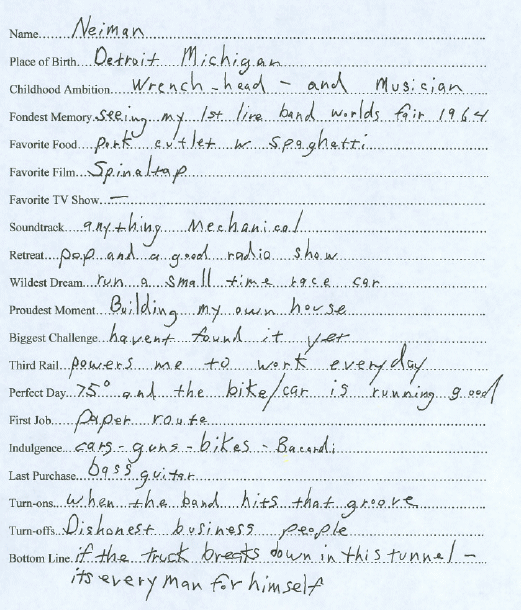 Name Neiman
Place of Birth Detroit Michigan
Childhood Ambition Wrench-head - and Musician
Fondest Memory seeing my 1st live band worlds fair 1964
Favorite Food pork cutlet w spaghatti
Favorite Film Spinaltap
Favorite TV Show —
Soundtrack anything Mechanical
Retreat pop and a good radio show
Wildest Dream run a small time race car
Proudest Moment Building my own house
Biggest Challenge havent found it yet
Third Rail powers me to work everyday
Perfect Day 75° and the bike/car is running good
First Job paper route
Indulgence cars-guns-bikes-Bacardi
Last Purchase bass guitar
Turn-ons when the band hits that groove
Turn-offs Dishonest business people
Bottom Line if the truck breaks down in this tunnel -
its every man for himself